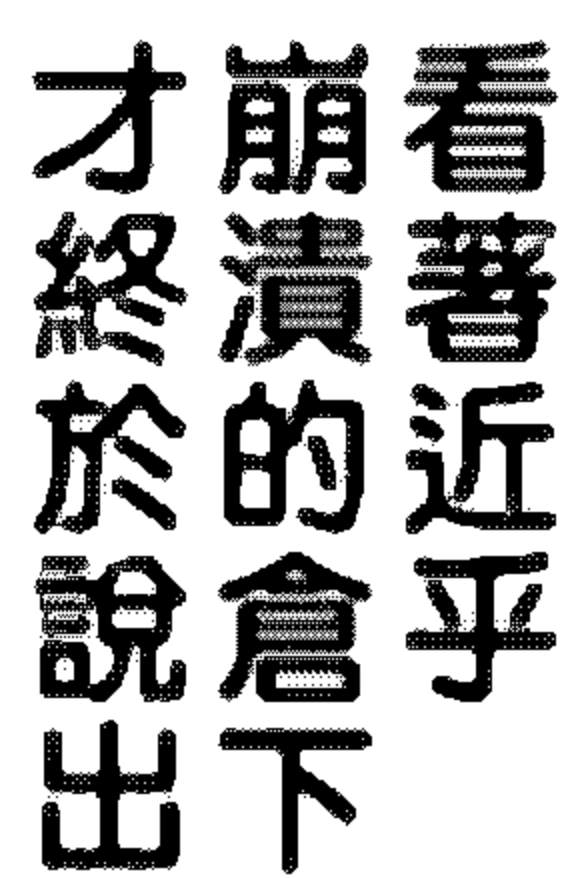 看著近乎
崩潰的倉下
才終於說出